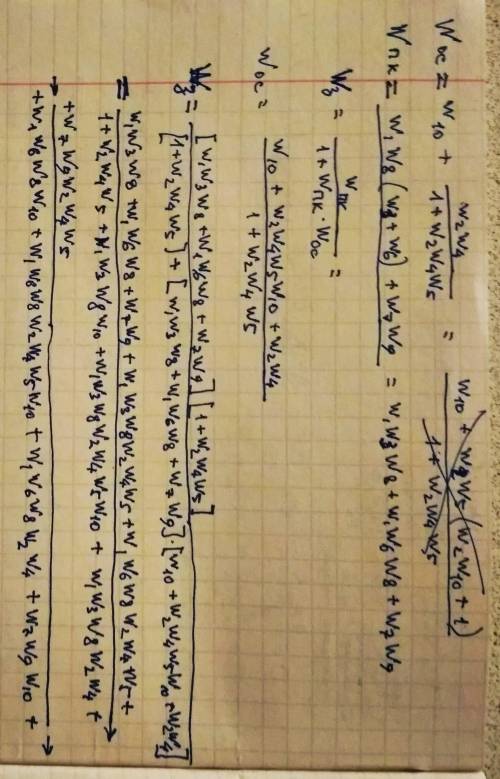 W_ос = W10 + W2W4 / (1 + W2W4W5) =
W_пк = W1W8(W3 + W6) + W7W9 = W1W3W8 + W1W6W8 + W7W9
W_з = W_пк / (1 + W_пк · W_ос) =
W_ос = (W10 + W2W4W5W10 + W2W4) / (1 + W2W4W5)
W_з = [W1W3W8 + W1W6W8 + W7W9][1 + W2W4W5] / ([1 + W2W4W5] + [W1W3W8 + W1W6W8 + W7W9]·[W10 + W2W4W5W10 + W2W4])
= W1W3W8 + W1W6W8 + W7W9 + W1W3W8W2W4W5 + W1W6W8W2W4W5 +
1 + W2W4W5 + W1W3W8W10 + W1W3W8W2W4W5W10 + W1W3W8W2W4 +
+ W7W9W2W4W5
+ W1W6W8W10 + W1W6W8W2W4W5W10 + W1W6W8W2W4 + W7W9W10 +